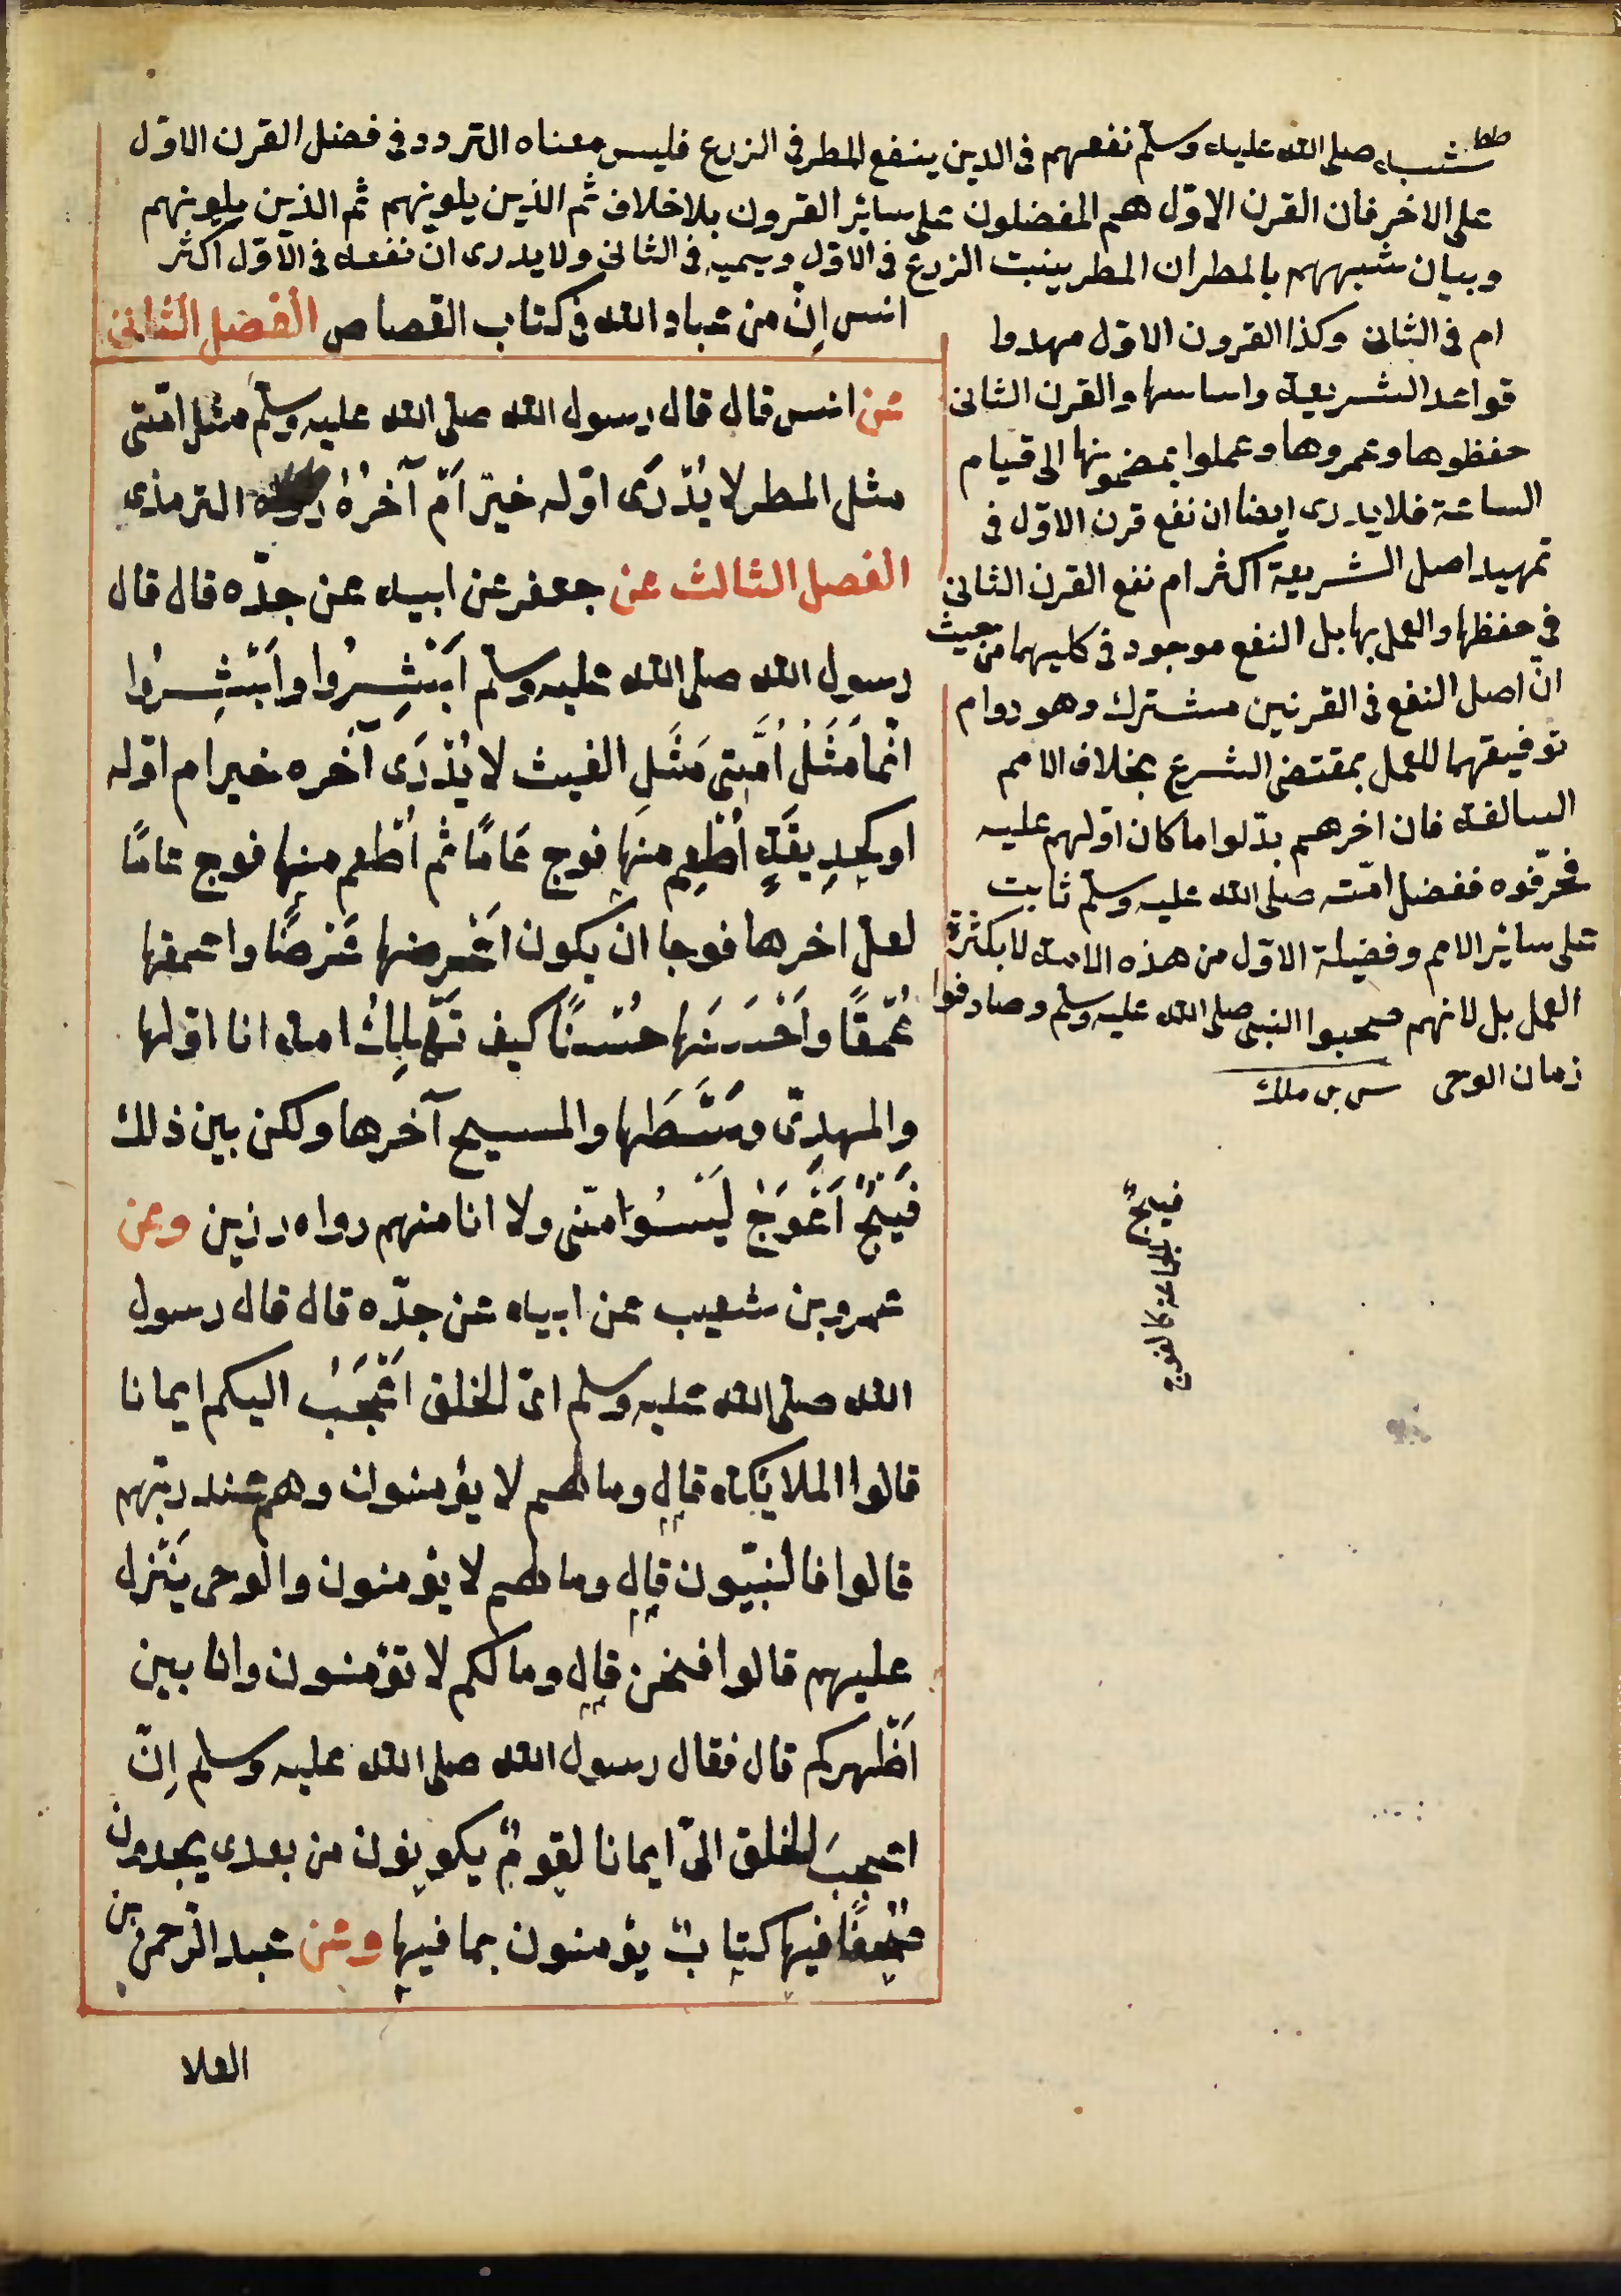 شبه صلى الله عليه وسلم نفعهم فى الدين ينفع المطر فى الزرع فليس معناه التردد فى فضل القرن الاوّل
على الاخر فان القرن الاوّل هم المفضلون على سائر القرون بلا خلاف ثم الذين يلونهم ثم الذين يلونهم
وبيان شبههم بالمطر ان المطر ينبت الزرع فى الاول وينميه فى الثانى ولا يدرى ان نفعه فى الاوّل اكثر
ام فى الثانى وكذا القرون الاوّل مهدوا
قواعد الشريعة واساسها والقرن الثانى
حفظوها وعمروها وعملوا بمضمونها الى قيام
الساعة فلا يدرى ايضا ان نفع قرن الاوّل فى
تمهيد اصل الشريعة اكثر ام نفع القرن الثانى
فى حفظها والعمل بها بل النفع موجود فى كليهما من حيث
انّ اصل النفع فى القرنين مشترك وهو دوام
توفيقهما للعمل بمقتضى الشرع بخلاف الامم
السالفة فان اخرهم بدّلوا ما كان اوّلهم عليه
فحرّفوه ففضل امّته صلى الله عليه وسلم ثابت
على سائر الامم وفضيلة الاوّل من هذه الامة لا بكثرة
العمل بل لانهم صحبوا النبى صلى الله عليه وسلم وصادفوا
زمان الوحى
انس اِنّ من عباد الله فى كتاب القصاص الفصل الثانى
عن انس قال قال رسول الله صلى الله عليه وسلّم مثل امّتى
مثل المطر لا يُدْرَى اوّله خير اَم آخرُهُ رواه الترمذى
الفصل الثالث عن جعفر عن ابيه عن جدّه قال قال
رسول الله صلى الله عليه وسلّم اَبْشِرُوا واَبْشِرُوا
انّما مَثَلُ اُمَّتِى مَثَلِ الغيث لا يُدْرَى آخره خير ام اوّله
او كحدِيقَةٍ اُطْعِم منها فوج عَامًا ثم اُطعم منها فوج عامًا
لعل اخرها فوجا ان يكون اَعْرضها عَرضًا واعمقها
عُمْقًا واَحْسَنَها حُسْنًا كيف تَهْلِكُ امة انا اوّلها
والمهدِىّ وَسَطَها والمسيح آخرها ولكن بين ذلك
فَيْجٌ اَعْوَجُ لَيْسُوا منّى ولا انا منهم رواه رزين وعن
عمرو بن شعيب عن ابيه عن جدّه قال قال رسول
الله صلى الله عليه وسلم اىّ الخلق اَعْجَبُ اليكم ايمانا
قالوا الملائكة قال وما لهم لا يؤمنون وهم عند ربّهم
قالوا فالنبيّون قال وما لهم لا يؤمنون والوحى يَنْزل
عليهم قالوا فنحن قال وما لكم لا تؤمنون وانا بين
اَظْهركم قال فقال رسول الله صلى الله عليه وسلم اِنّ
اعجبَ الخلق الىّ ايمانا لقومٌ يكونون من بعدى يجدون
صُحُفًا فيها كتابٌ يؤمنون بما فيها وعن عبد الرّحمن بن
فيج الجماعة كالفوج
العلا